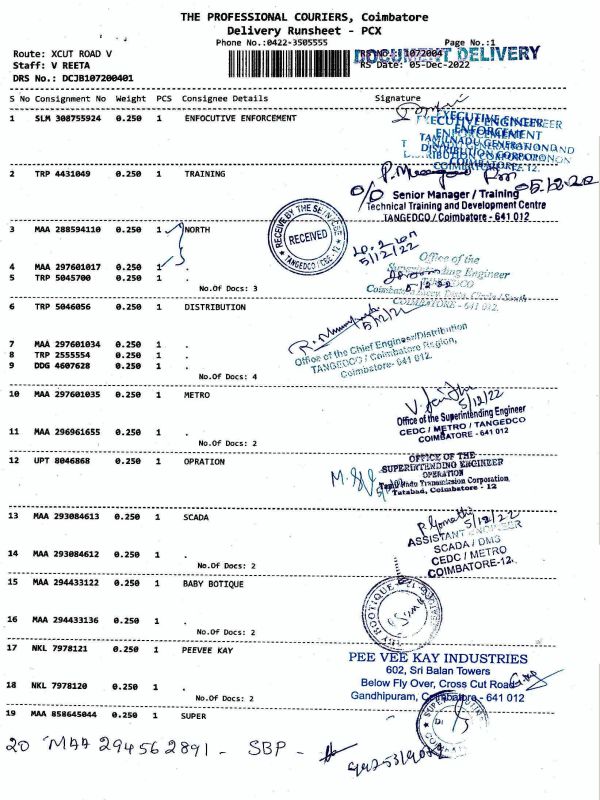 THE PROFESSIONAL COURIERS, Coimbatore
Delivery Runsheet - PCX
Phone No.:0422-3505555
Page No.:1
Route: XCUT ROAD V
Staff: V REETA
DRS No.: DCJB107200401
RS Date: 05-Dec-2022
DOCUMENT DELIVERY
S No Consignment No Weight PCS Consignee Details Signature
1 SLM 308755924 0.250 1 ENFOCUTIVE ENFORCEMENT
EXECUTIVE ENGINEER
ENFORCEMENT
TAMILNADU GENERATION AND
DISTRIBUTION CORPORATION
COIMBATORE-12.
2 TRP 4431049 0.250 1 TRAINING
05.12.22
Senior Manager / Training
Technical Training and Development Centre
TANGEDCO / Coimbatore - 641 012
3 MAA 288594110 0.250 1 NORTH
RECEIVED
5/12/22
4 MAA 297601017 0.250 1 .
5 TRP 5045700 0.250 1 .
No.Of Docs: 3
Office of the
Superintending Engineer
TANGEDCO
COIMBATORE - 641 012.
6 TRP 5046056 0.250 1 DISTRIBUTION
7 MAA 297601034 0.250 1 .
8 TRP 2555554 0.250 1 .
9 DDG 4607628 0.250 1 .
No.Of Docs: 4
Office of the Chief Engineer/Distribution
TANGEDCO / Coimbatore Region,
Coimbatore- 641 012.
10 MAA 297601035 0.250 1 METRO
5/12/22
Office of the Superintending Engineer
CEDC / METRO / TANGEDCO
COIMBATORE - 641 012
11 MAA 296961655 0.250 1 .
No.Of Docs: 2
12 UPT 8046868 0.250 1 OPRATION
OFFICE OF THE
SUPERINTENDING ENGINEER
OPERATION
Tamil Nadu Transmission Corporation,
Tatabad, Coimbatore - 12
13 MAA 293084613 0.250 1 SCADA
5/12/22
ASSISTANT ENGINEER
SCADA / DMS
CEDC / METRO
COIMBATORE-12.
14 MAA 293084612 0.250 1 .
No.Of Docs: 2
15 BABY BOTIQUE
MAA 294433122 0.250 1
16 MAA 294433136 0.250 1 .
No.Of Docs: 2
17 NKL 7978121 0.250 1 PEEVEE KAY
PEE VEE KAY INDUSTRIES
602, Sri Balan Towers
Below Fly Over, Cross Cut Road
Gandhipuram, Coimbatore - 641 012
18 NKL 7978120 0.250 1 .
No.Of Docs: 2
19 MAA 858645044 0.250 1 SUPER
20 MAA 294562891 - SBP -